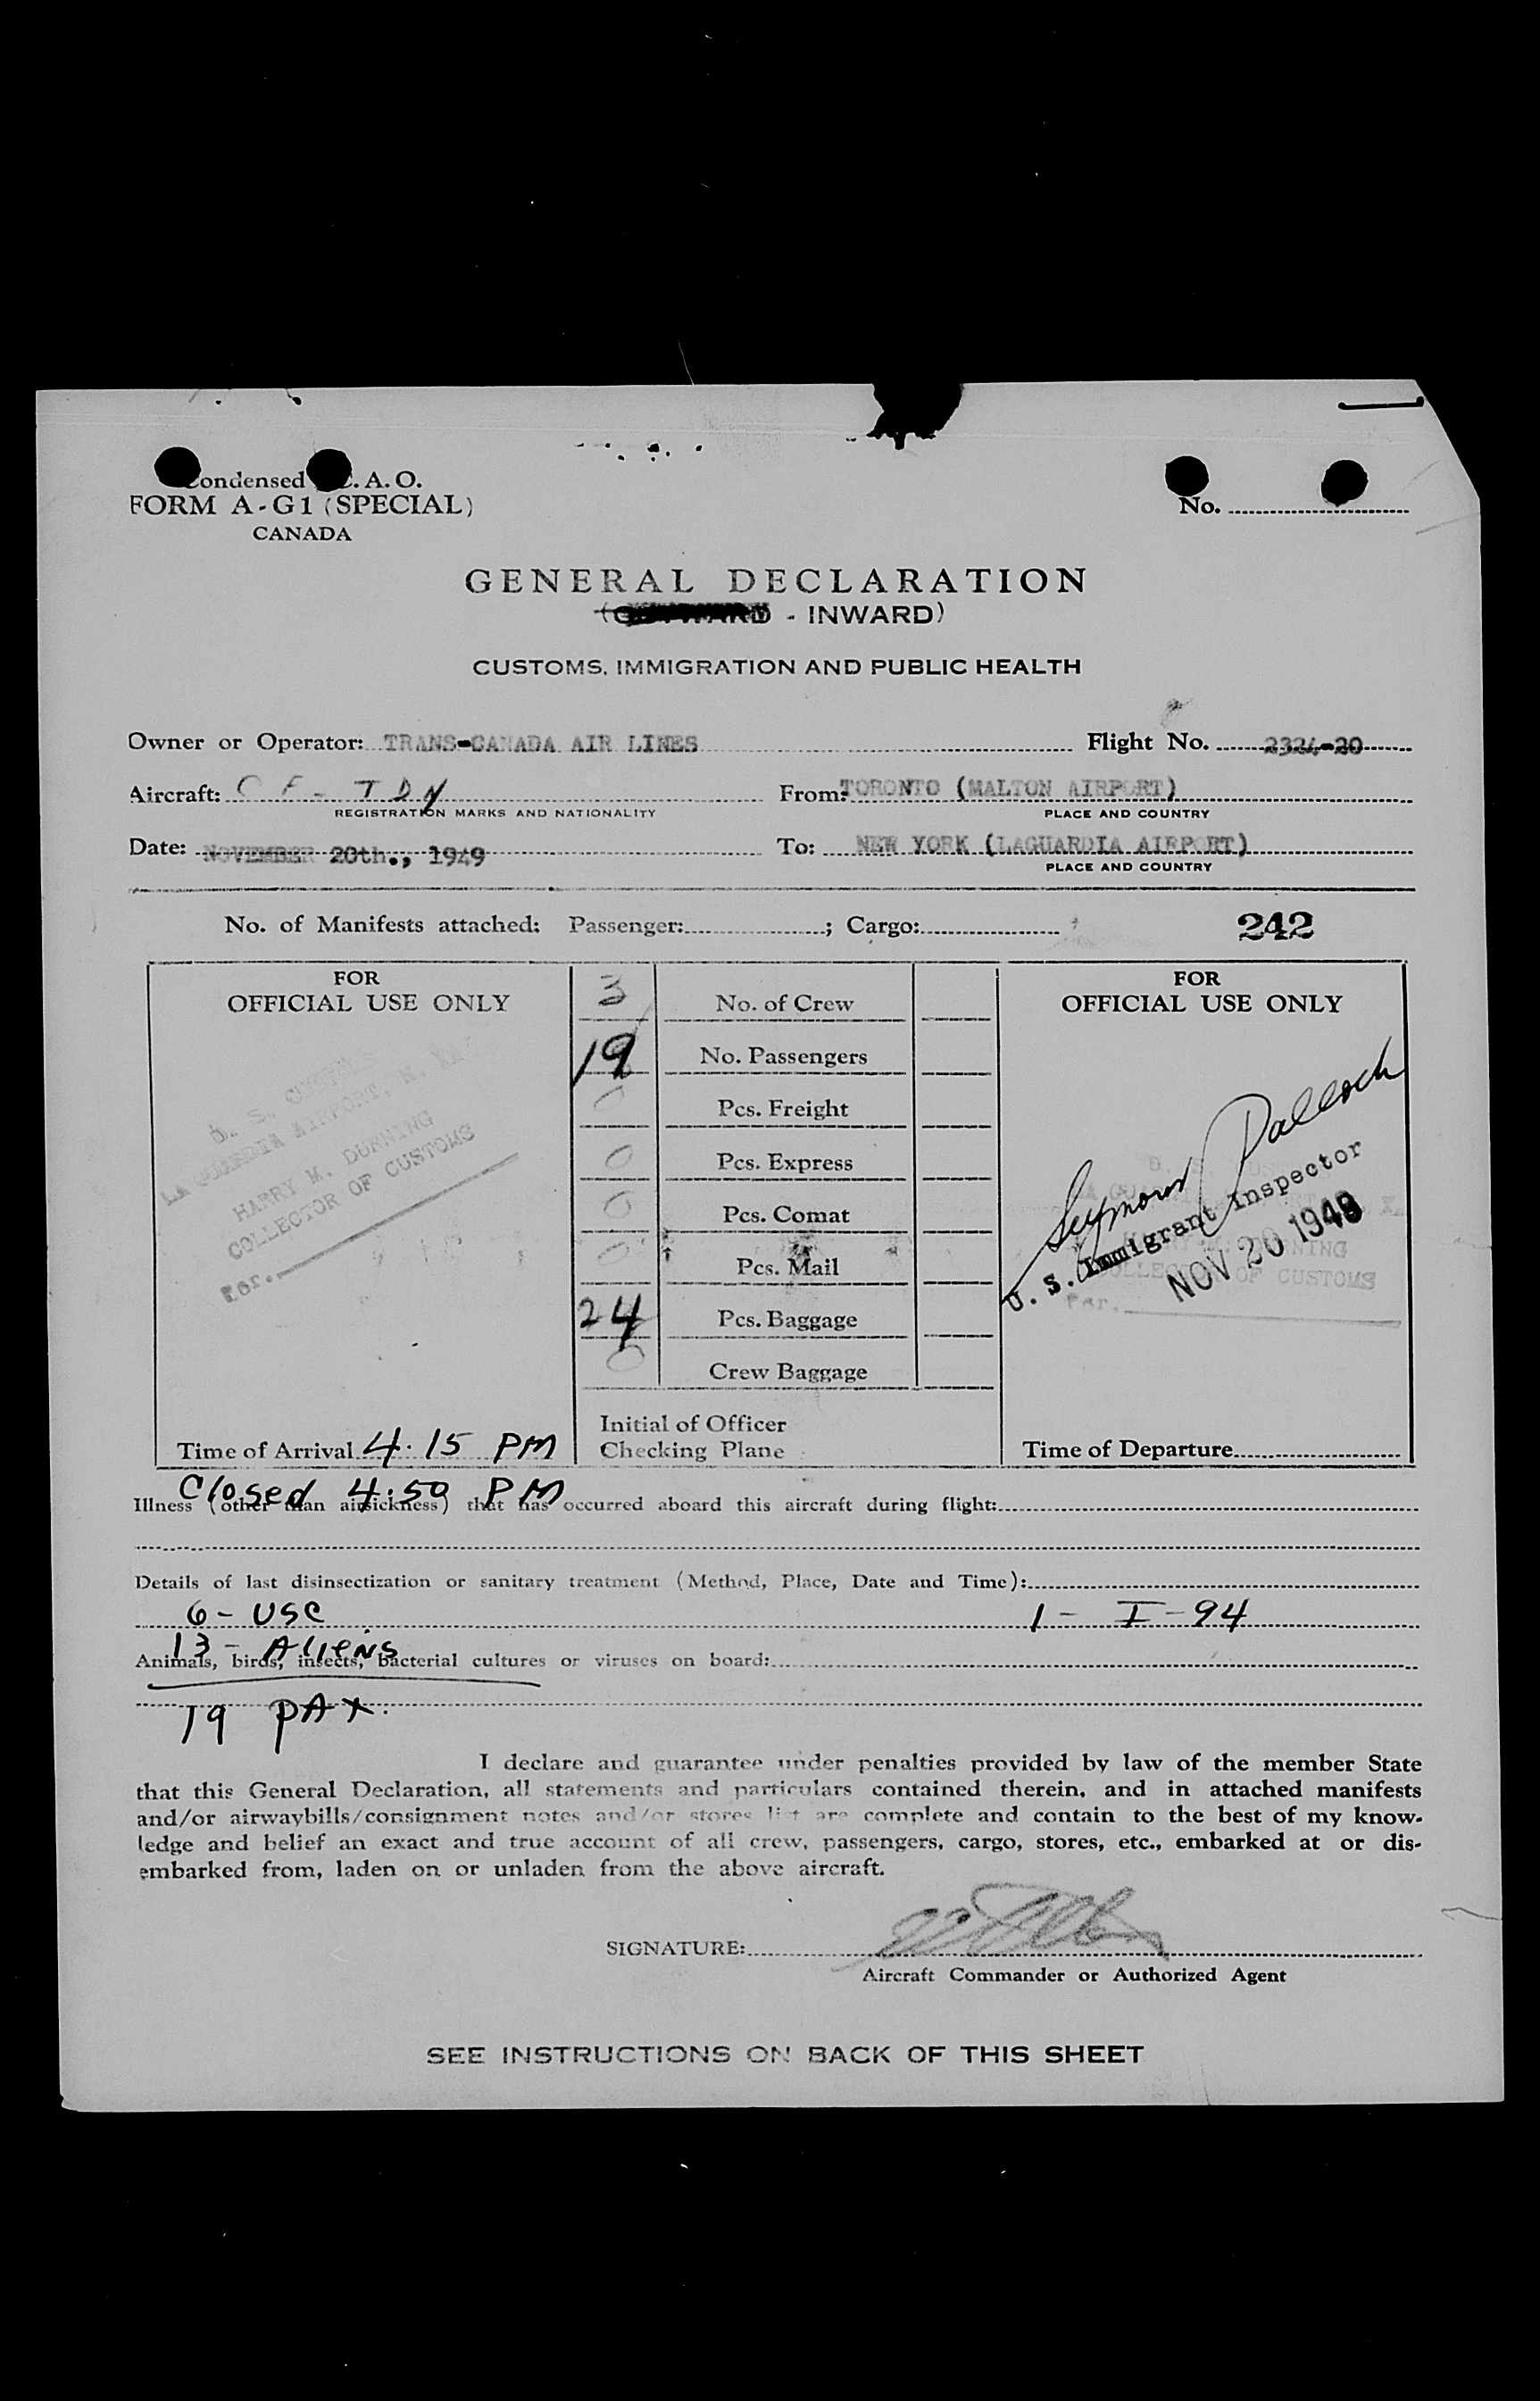 Condensed I.C.A.O.
FORM A-G1 (SPECIAL)
CANADA
No.
GENERAL DECLARATION
(OUTWARD - INWARD)
CUSTOMS, IMMIGRATION AND PUBLIC HEALTH
Owner or Operator: TRANS-CANADA AIR LINES Flight No. 2324-20
Aircraft: CF-TDN From: TORONTO (MALTON AIRPORT)
REGISTRATION MARKS AND NATIONALITY PLACE AND COUNTRY
Date: NOVEMBER 20th., 1949 To: NEW YORK (LAGUARDIA AIRPORT)
PLACE AND COUNTRY
No. of Manifests attached: Passenger: ; Cargo: 242
FOR
OFFICIAL USE ONLY
U. S. CUSTOMS
LA GUARDIA AIRPORT, N. Y.
HARRY M. DURNING
COLLECTOR OF CUSTOMS
Per.
Time of Arrival 4:15 PM
3 No. of Crew
19 No. Passengers
0 Pcs. Freight
0 Pcs. Express
0 Pcs. Comat
0 Pcs. Mail
24 Pcs. Baggage
0 Crew Baggage
Initial of Officer
Checking Plane
FOR
OFFICIAL USE ONLY
Seymour
U. S. Immigrant Inspector
NOV 20 1949
COLLECTOR OF CUSTOMS
Per.
Time of Departure
Closed 4:50 PM
Illness (other than airsickness) that has occurred aboard this aircraft during flight:
Details of last disinsectization or sanitary treatment (Method, Place, Date and Time):
6 - USC 1 - I-94
13 - Aliens
Animals, birds, insects, bacterial cultures or viruses on board:
19 PAX.
I declare and guarantee under penalties provided by law of the member State
that this General Declaration, all statements and particulars contained therein, and in attached manifests
and/or airwaybills/consignment notes and/or stores list are complete and contain to the best of my know-
ledge and belief an exact and true account of all crew, passengers, cargo, stores, etc., embarked at or dis-
embarked from, laden on or unladen from the above aircraft.
SIGNATURE:
Aircraft Commander or Authorized Agent
SEE INSTRUCTIONS ON BACK OF THIS SHEET